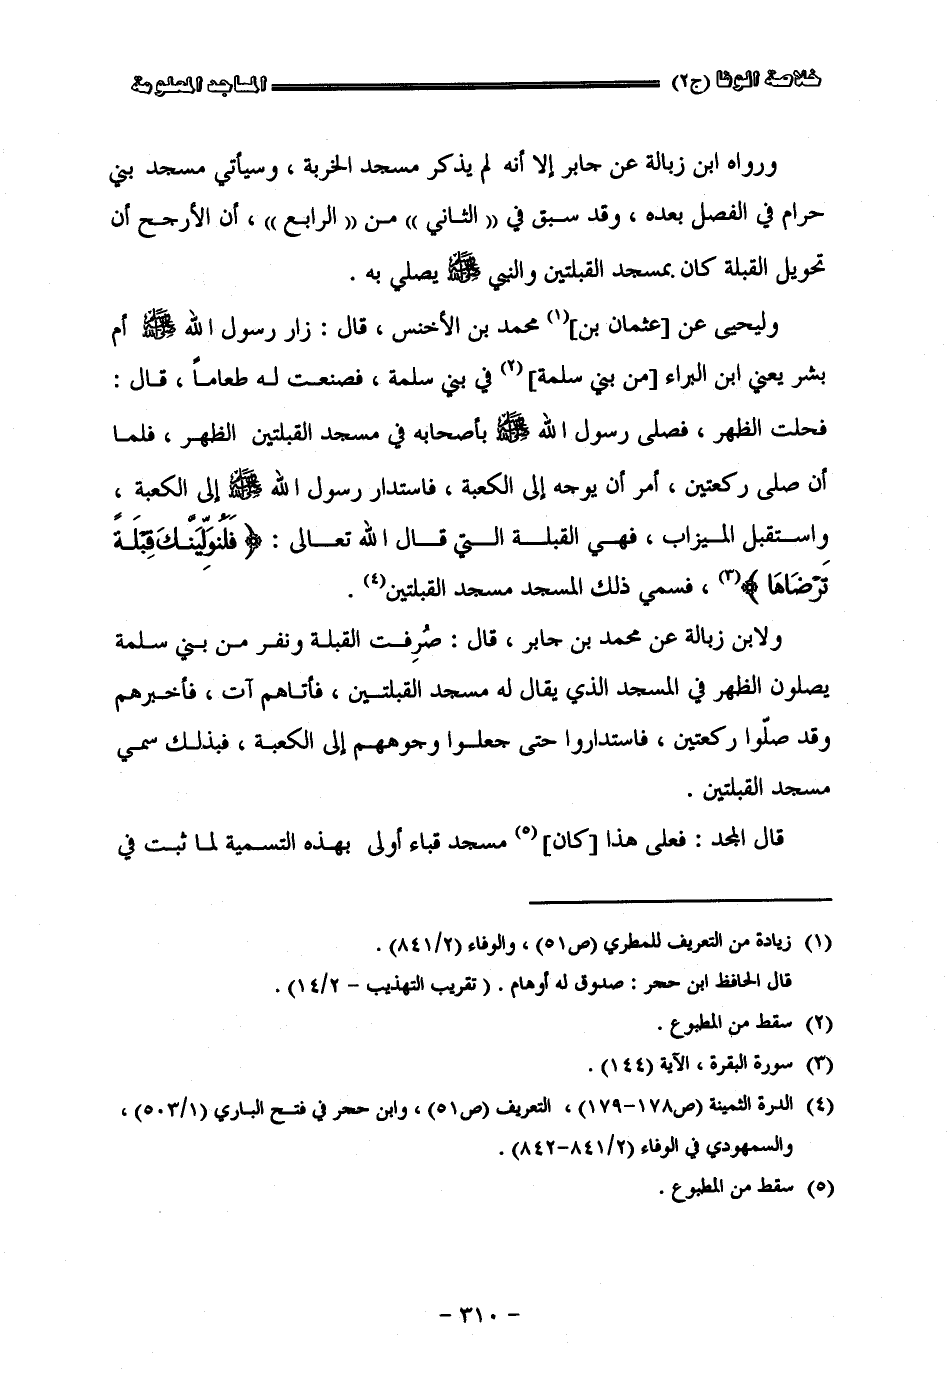 خلاصة الوفا (ج٢) المساجد المعلومة
ورواه ابن زبالة عن جابر إلا أنه لم يذكر مسجد الخربة ، وسيأتي مسجد بني
حرام في الفصل بعده ، وقد سبق في (( الثاني )) من (( الرابع )) ، أن الأرجح أن
تحويل القبلة كان بمسجد القبلتين والنبي ﷺ يصلي به .
وليحيى عن [عثمان بن](١) محمد بن الأخنس ، قال : زار رسول الله ﷺ أم
بشر يعني ابن البراء [من بني سلمة](٢) في بني سلمة ، فصنعت له طعاماً ، قال :
فحلت الظهر ، فصلى رسول الله ﷺ بأصحابه في مسجد القبلتين الظهر ، فلما
أن صلى ركعتين ، أمر أن يوجه إلى الكعبة ، فاستدار رسول الله ﷺ إلى الكعبة ،
واستقبل الميزاب ، فهي القبلة التي قال الله تعالى : ﴿ فَلَنُوَلِّيَنَّكَ قِبْلَةً
تَرْضَاهَا ﴾(٣) ، فسمي ذلك المسجد مسجد القبلتين(٤) .
ولابن زبالة عن محمد بن جابر ، قال : صُرِفت القبلة ونفر من بني سلمة
يصلون الظهر في المسجد الذي يقال له مسجد القبلتين ، فأتاهم آت ، فأخبرهم
وقد صلّوا ركعتين ، فاستداروا حتى جعلوا وجوههم إلى الكعبة ، فبذلك سمي
مسجد القبلتين .
قال المجد : فعلى هذا [كان](٥) مسجد قباء أولى بهذه التسمية لما ثبت في
(١) زيادة من التعريف للمطري (ص٥١) ، والوفاء (٨٤١/٢) .
قال الحافظ ابن حجر : صدوق له أوهام . ( تقريب التهذيب – ١٤/٢) .
(٢) سقط من المطبوع .
(٣) سورة البقرة ، الآية (١٤٤) .
(٤) الدرة الثمينة (ص١٧٨-١٧٩) ، التعريف (ص٥١) ، وابن حجر في فتح الباري (٥٠٣/١) ،
والسمهودي في الوفاء (٨٤١/٢-٨٤٢) .
(٥) سقط من المطبوع .
- ٣١٠ -